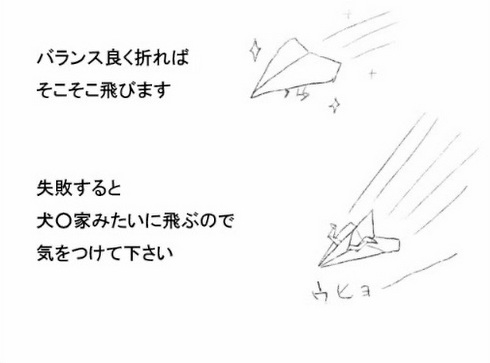 バランス良く折れば
そこそこ飛びます
失敗すると
犬〇家みたいに飛ぶので
気をつけて下さい
ウヒョーーー